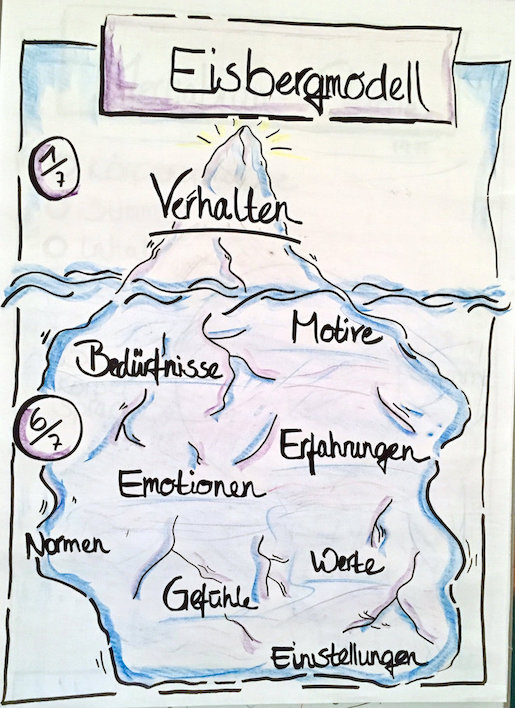 Eisbergmodell
1/7
Verhalten
Motive
Bedürfnisse
6/7
Erfahrungen
Emotionen
Normen
Werte
Gefühle
Einstellungen